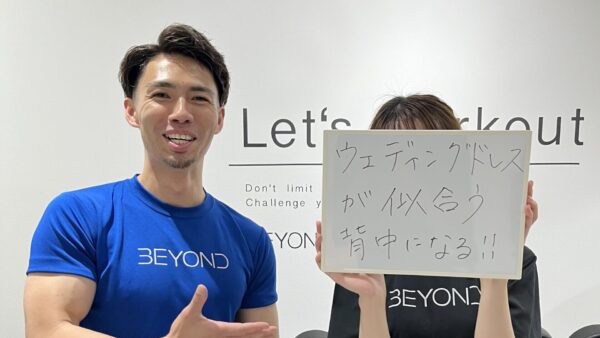 Let's
rkout
Don't limit
Challenge y
EYON
ウェディングドレス
が似合う
背中になる!!
BEYOND
BEYOND